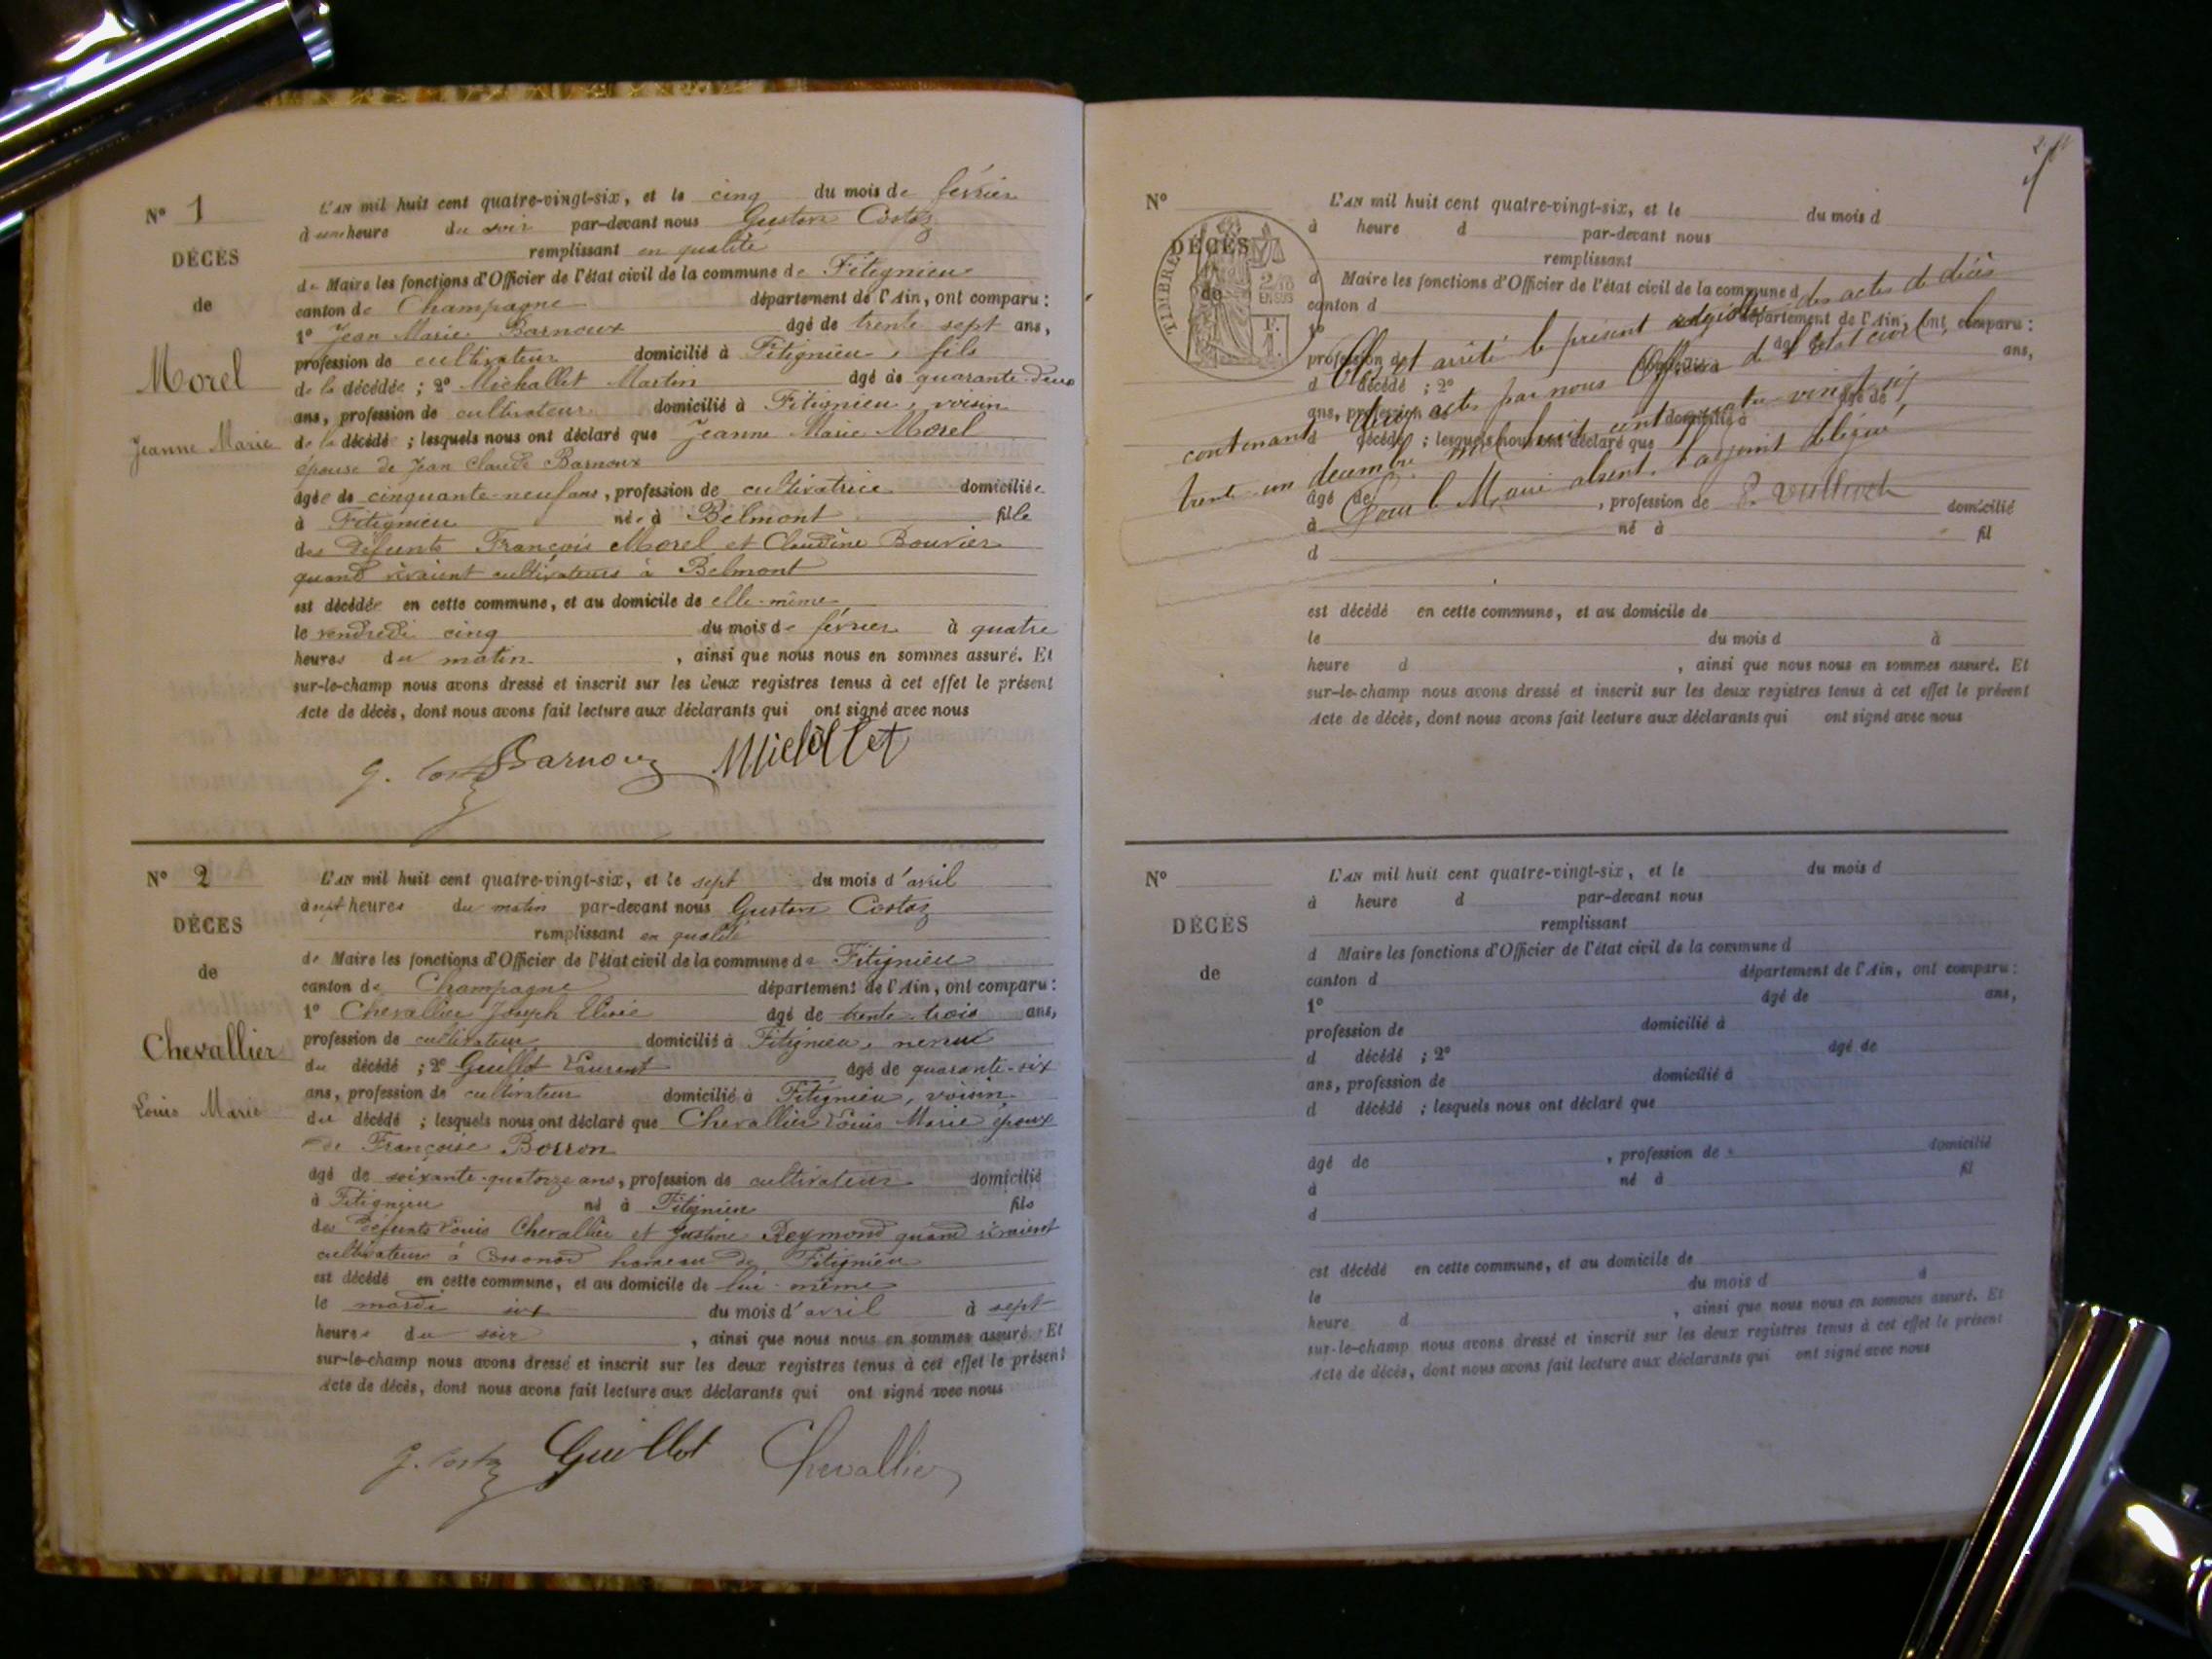 N° 1
DÉCÈS
de
Morel
Jeanne Marie
L'AN mil huit cent quatre-vingt-six, et le cinq du mois de février
à une heure du soir par-devant nous Gustave Costaz
remplissant en qualité
de Maire les fonctions d'Officier de l'état civil de la commune de Fitignieu
canton de Champagne département de l'Ain, ont comparu :
1° Jean Marie Barnoux âgé de trente sept ans,
profession de cultivateur domicilié à Fitignieu, fils
de la décédée ; 2° Michallet Martin âgé de quarante-deux
ans, profession de cultivateur domicilié à Fitignieu, voisin
de la décédé ; lesquels nous ont déclaré que Jeanne Marie Morel
épouse de Jean Claude Barnoux
âgée de cinquante-neuf ans, profession de cultivatrice domiciliée
à Fitignieu née à Belmont fille
des défunts François Morel et Claudine Bouvier
quand vivaient cultivateurs à Belmont
est décédée en cette commune, et au domicile de elle-même
le vendredi cinq du mois de février à quatre
heures du matin, ainsi que nous nous en sommes assuré. Et
sur-le-champ nous avons dressé et inscrit sur les deux registres tenus à cet effet le présent
Acte de décès, dont nous avons fait lecture aux déclarants qui ont signé avec nous
G. Costaz Barnoux Michallet
N° 2
DÉCÈS
de
Chevallier
Louis Marie
L'AN mil huit cent quatre-vingt-six, et le sept du mois d'avril
à sept heures du matin par-devant nous Gustave Costaz
remplissant en qualité
de Maire les fonctions d'Officier de l'état civil de la commune de Fitignieu
canton de Champagne département de l'Ain, ont comparu :
1° Chevallier Joseph âgé de trente-trois ans,
profession de cultivateur domicilié à Fitignieu, neveu
du décédé ; 2° Guillot Laurent âgé de quarante-six
ans, profession de cultivateur domicilié à Fitignieu, voisin
du décédé ; lesquels nous ont déclaré que Chevallier Louis Marie époux
de Françoise Borron
âgé de soixante-quatorze ans, profession de cultivateur domicilié
à Fitignieu né à Fitignieu fils
des défunts Louis Chevallier et Justine Reymond quand vivaient
cultivateurs à hameau de Fitignieu
est décédé en cette commune, et au domicile de lui-même
le mardi six du mois d'avril à sept
heures du soir, ainsi que nous nous en sommes assuré. Et
sur-le-champ nous avons dressé et inscrit sur les deux registres tenus à cet effet le présent
Acte de décès, dont nous avons fait lecture aux déclarants qui ont signé avec nous
G. Costaz Guillot Chevallier
N°
DÉCÈS
de
TIMBRE
2/10
EN SUS
L'AN mil huit cent quatre-vingt-six, et le du mois d
à heure d par-devant nous
remplissant
d Maire les fonctions d'Officier de l'état civil de la commune d
canton d département de l'Ain, ont comparu :
1° âgé de ans,
profession de domicilié à
d décédé ; 2° âgé de
ans, profession de domicilié à
d décédé ; lesquels nous ont déclaré que
Clos et arrêté le présent registre des actes de décès
contenant deux actes par nous Officier de l'état civil, le
trente-un décembre mil huit cent quatre-vingt-six
Pour le Maire absent, l'adjoint délégué
âgé de , profession de domicilié
à né à fil
d
est décédé en cette commune, et au domicile de
le du mois d à
heure d , ainsi que nous nous en sommes assuré. Et
sur-le-champ nous avons dressé et inscrit sur les deux registres tenus à cet effet le présent
Acte de décès, dont nous avons fait lecture aux déclarants qui ont signé avec nous
N°
DÉCÈS
de
L'AN mil huit cent quatre-vingt-six, et le du mois d
à heure d par-devant nous
remplissant
d Maire les fonctions d'Officier de l'état civil de la commune d
canton d département de l'Ain, ont comparu :
1° âgé de ans,
profession de domicilié à
d décédé ; 2° âgé de
ans, profession de domicilié à
d décédé ; lesquels nous ont déclaré que
âgé de , profession de domicilié
à né à fil
d
est décédé en cette commune, et au domicile de
le du mois d à
heure d , ainsi que nous nous en sommes assuré. Et
sur-le-champ nous avons dressé et inscrit sur les deux registres tenus à cet effet le présent
Acte de décès, dont nous avons fait lecture aux déclarants qui ont signé avec nous